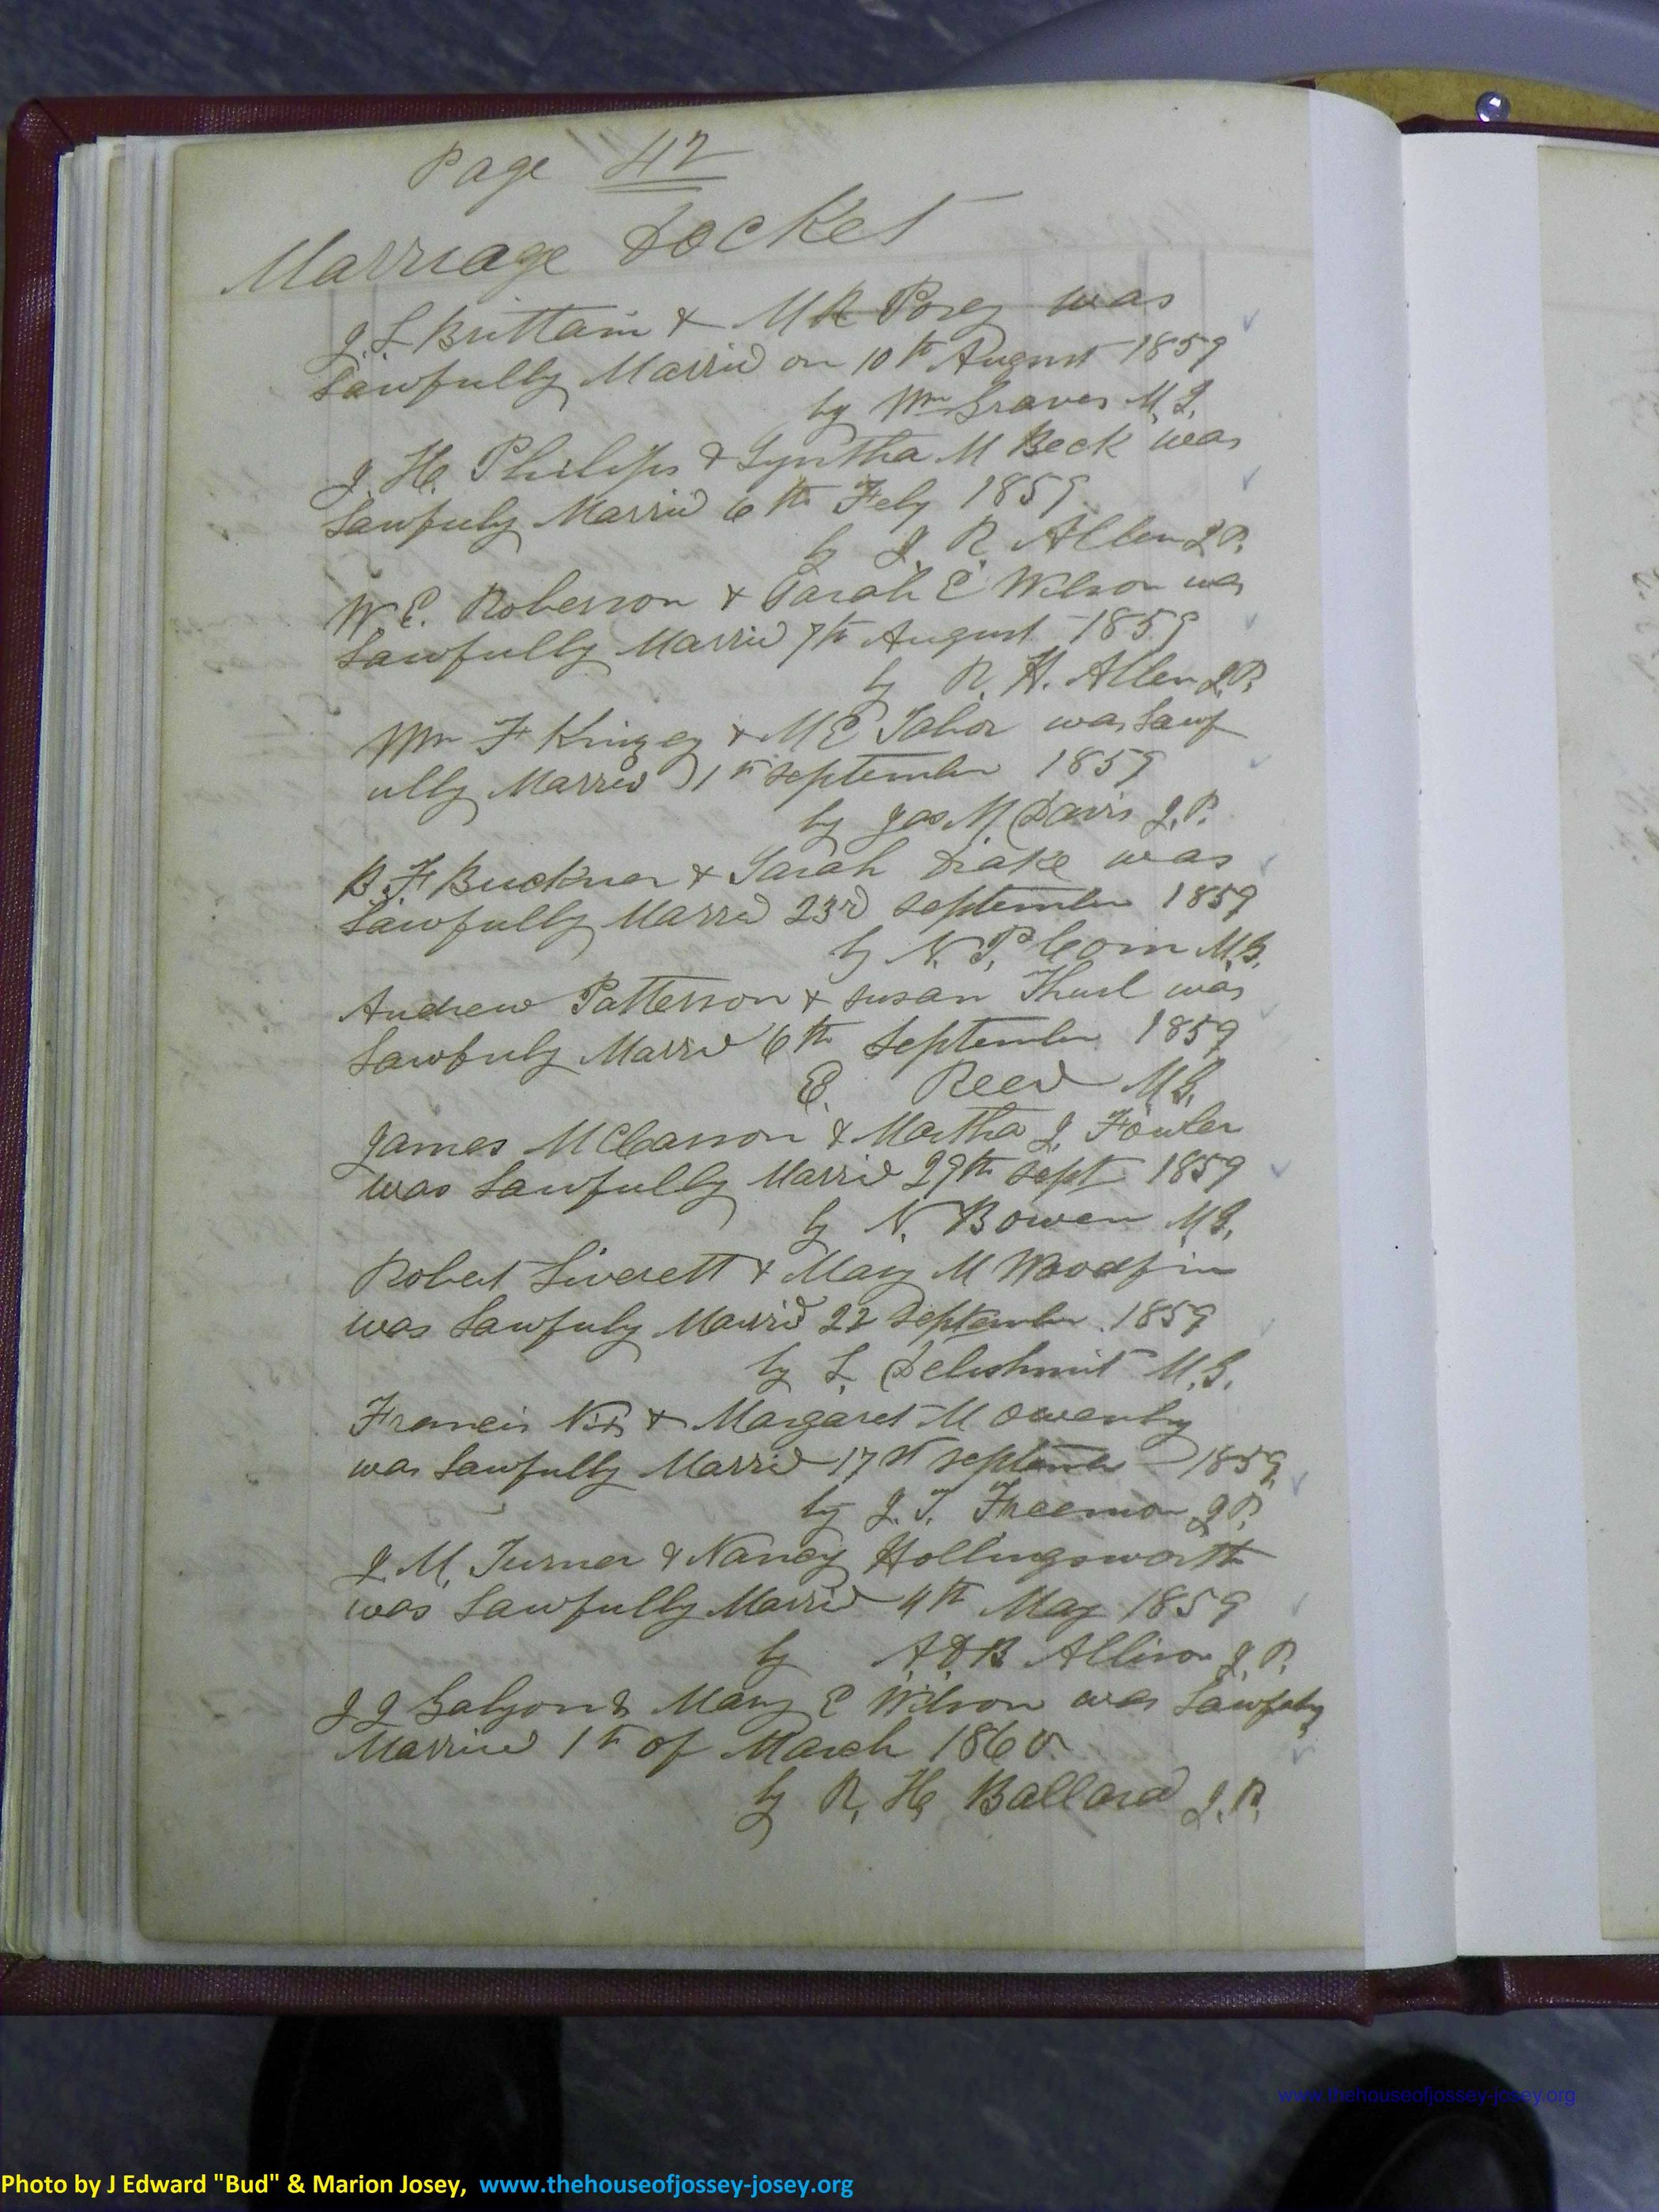 Page 42
Marriage Docket
J. L Brittain & M R Posey was
Lawfully Marrid on 10th August 1859
by Wm Graves M. G.
J. H. Philips & Syntha M Beck was
Lawfuly Marrid 6th Feby 1859
by J. R. Allen J P.
W. E. Roberson & Sarah E Wilson was
Lawfully Marrid 7th August 1859
by R. H. Allen J. P.
Wm F Kinzey & M E Tabor was Lawf
ully Marrid 1th September 1859
by Jas M. Davis J. P.
B. F Buckner & Sarah Drake was
Lawfully Marrid 23rd September 1859
by N. P. Corn M. G.
Andrew Patterson & Susan was
Lawfuly Marrid 6th September 1859
E. Reed M G.
James McCarson & Martha J. Fowler
was Lawfully Marrid 29th Sept 1859
by N. Bowen M G.
Robert Liverett & Mary M Woodfin
was Lawfuly Marrid 22 September 1859
by L. Delishmit M. G.
Francis Nix & Margaret M Owenby
was Lawfully Marrid 17th September 1859
by J. T. Freeman J P.
J. M. Turner & Nancy Hollingsworth
was Lawfully Marrid 4th May 1859
by A. D. B Allison J. P.
J J Galyon & Mary E Wilson was Lawfuly
Married 1th of March 1860
by R. H. Ballard J. P.
www.thehouseofjossey-josey.org
Photo by J Edward "Bud" & Marion Josey, www.thehouseofjossey-josey.org